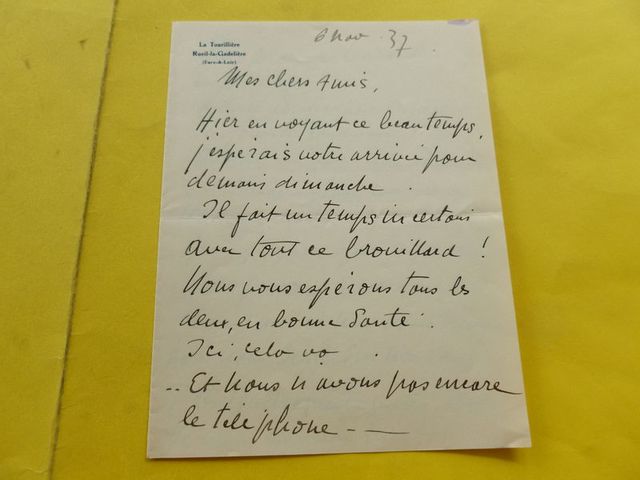 La Tourillière
Rueil-la-Gadelière
(Eure-&-Loir)
6 Nov. 37
Mes chers Amis,
Hier en voyant ce beau temps,
j'espérais votre arrivée pour
demain dimanche.
Il fait un temps incertain
avec tout ce brouillard !
Nous vous espérons tous les
deux, en bonne Santé.
Ici, cela va.
.. Et nous n'avons pas encore
le téléphone — —